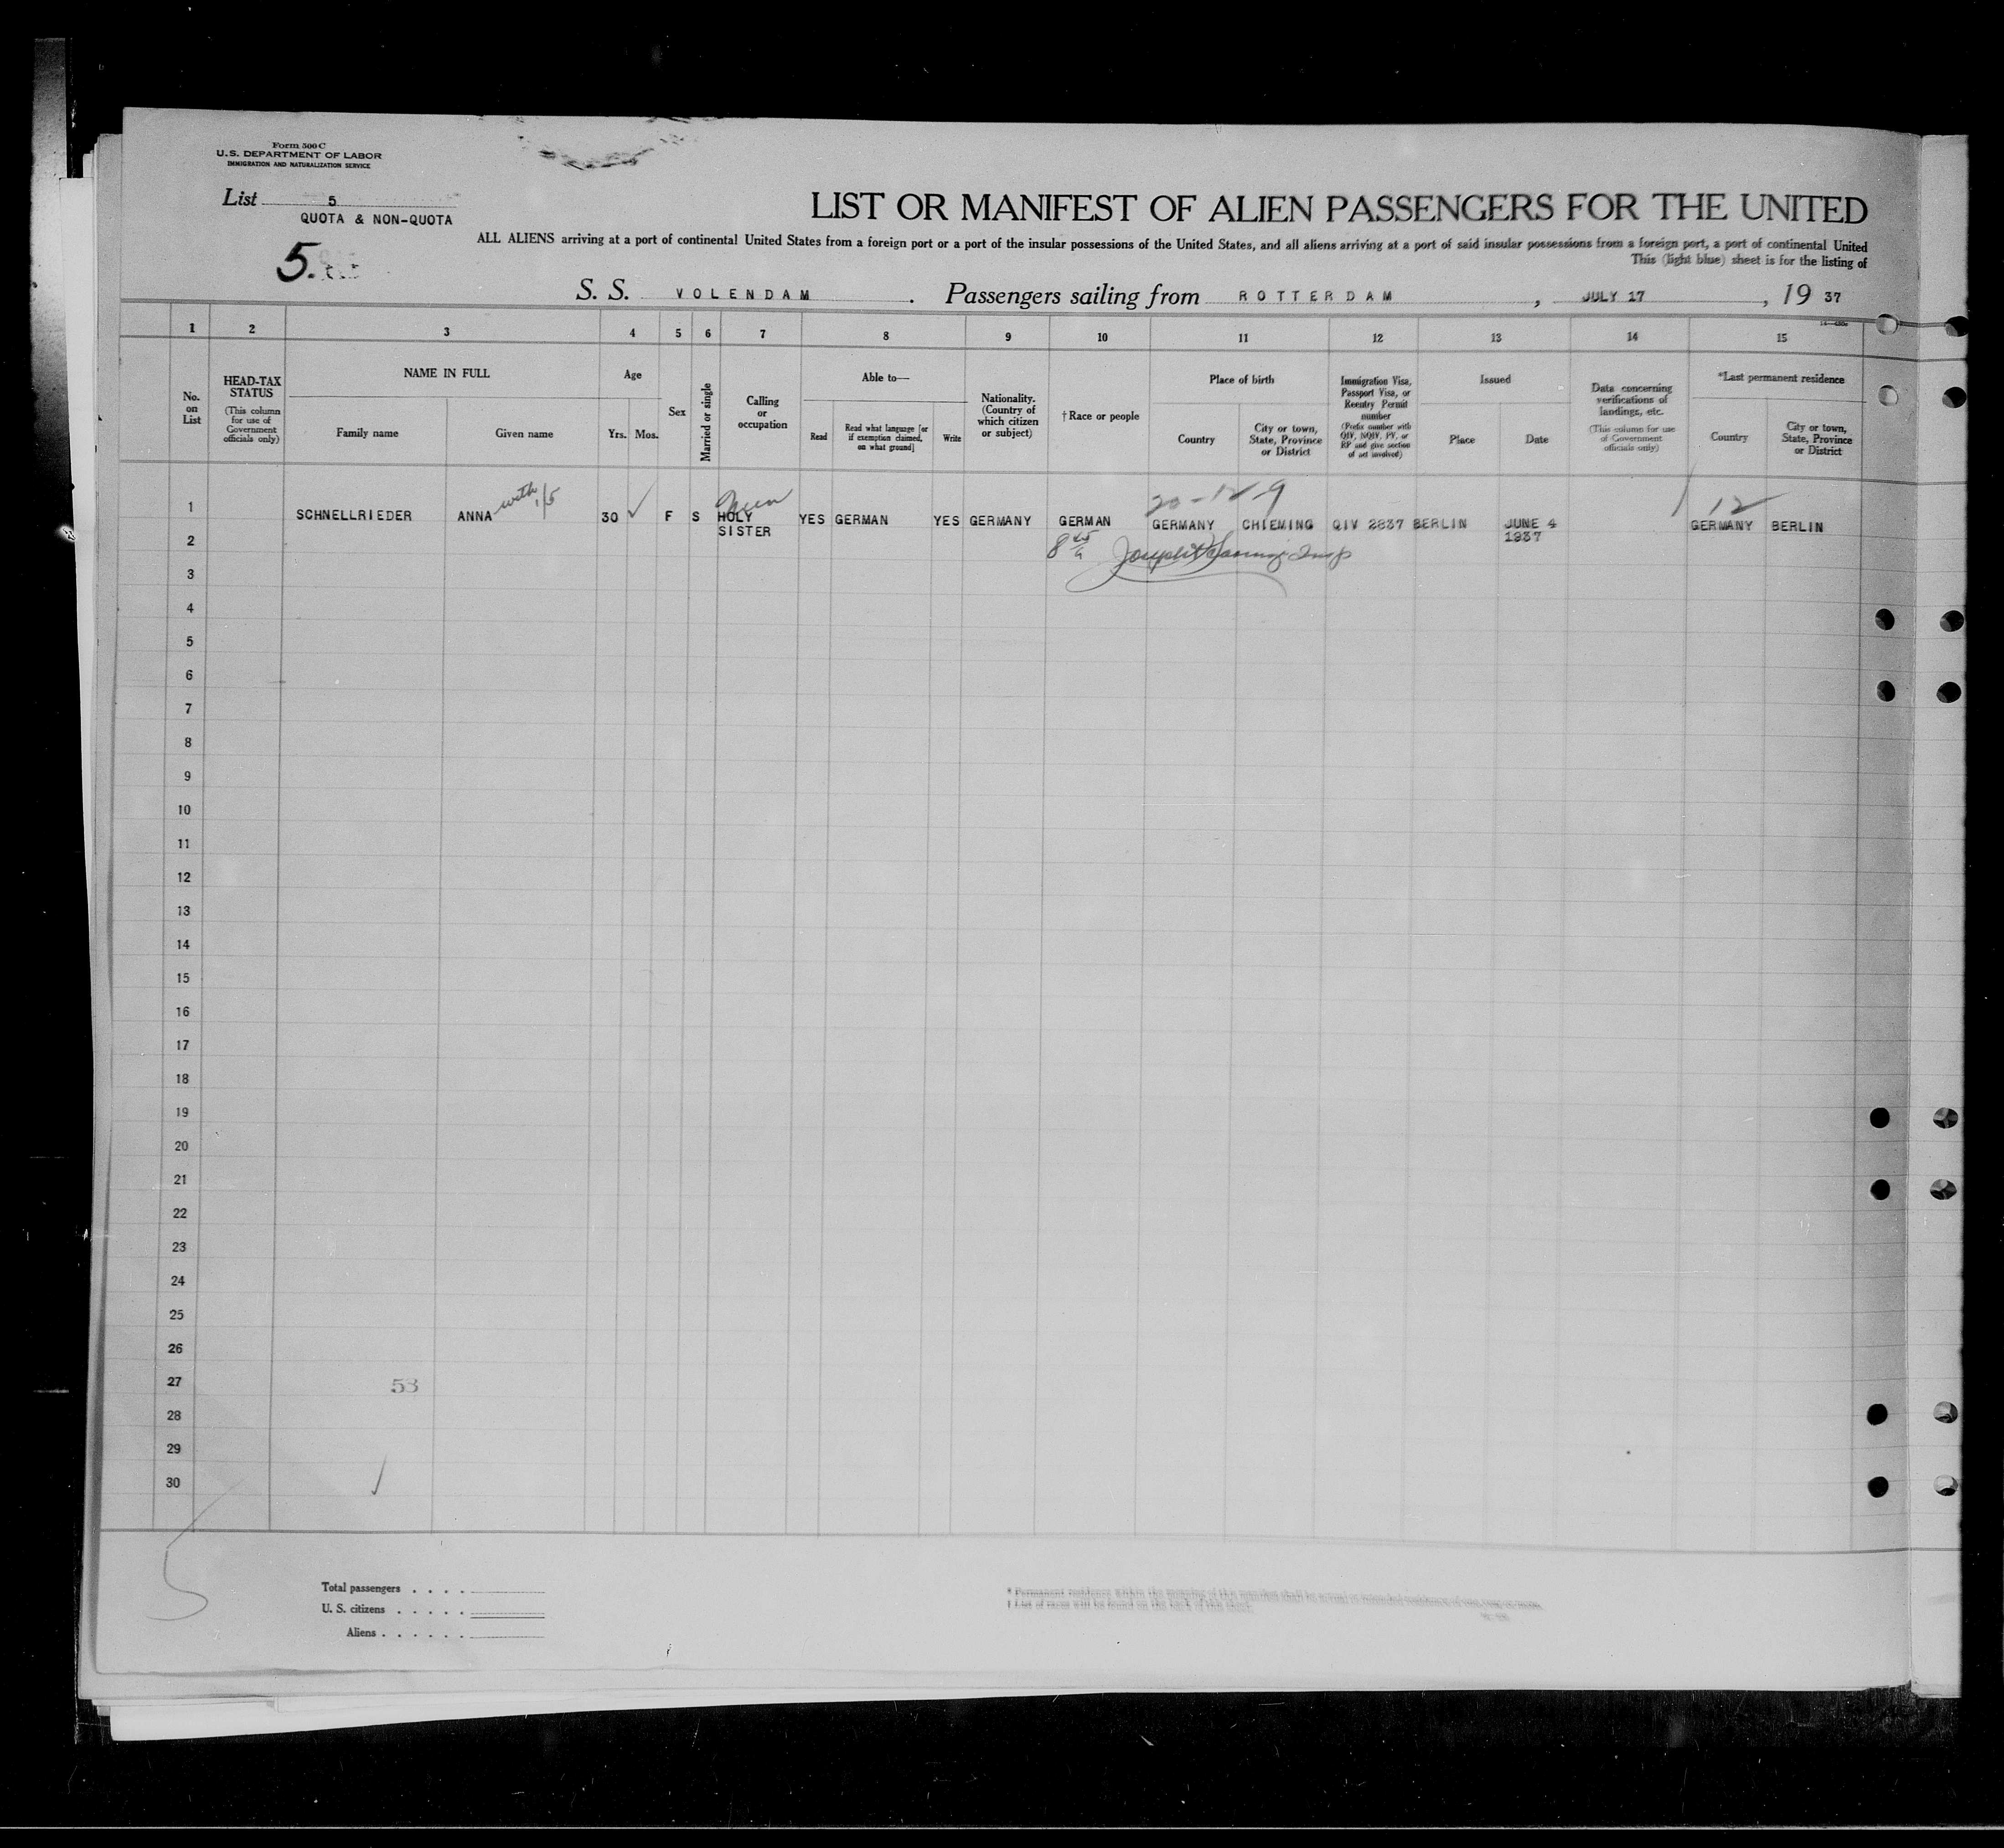 Form 500 C
U.S. DEPARTMENT OF LABOR
IMMIGRATION AND NATURALIZATION SERVICE
List 5
QUOTA & NON-QUOTA
5.
LIST OR MANIFEST OF ALIEN PASSENGERS FOR THE UNITED
ALL ALIENS arriving at a port of continental United States from a foreign port or a port of the insular possessions of the United States, and all aliens arriving at a port of said insular possessions from a foreign port, a port of continental United
This (light blue) sheet is for the listing of
S. S. VOLENDAM. Passengers sailing from ROTTERDAM, JULY 17, 19 37
1 2 3 4 5 6 7 8 9 10 11 12 13 14 15
No. on List
HEAD-TAX STATUS
(This column for use of Government officials only)
NAME IN FULL
Family name
Given name
Age
Yrs. Mos.
Sex
Married or single
Calling or occupation
Able to—
Read
Read what language [or if exemption claimed, on what ground]
Write
Nationality. (Country of which citizen or subject)
†Race or people
Place of birth
Country
City or town, State, Province or District
Immigration Visa, Passport Visa, or Reentry Permit number
(Prefix number with QIV, NQIV, PV, or RP and give section of act involved)
Issued
Place
Date
Data concerning verifications of landings, etc.
(This column for use of Government officials only)
*Last permanent residence
Country
City or town, State, Province or District
with 1/5
Nun
20-12-9
12
1 SCHNELLRIEDER ANNA 30 F S HOLY SISTER YES GERMAN YES GERMANY GERMAN GERMANY CHIEMING QIV 2837 BERLIN JUNE 4 1937 GERMANY BERLIN
2
3
4
5
6
7
8
9
10
11
12
13
14
15
16
17
18
19
20
21
22
23
24
25
26
27 53
28
29
30
5
Total passengers . . . .
U. S. citizens . . . . .
Aliens . . . . . .